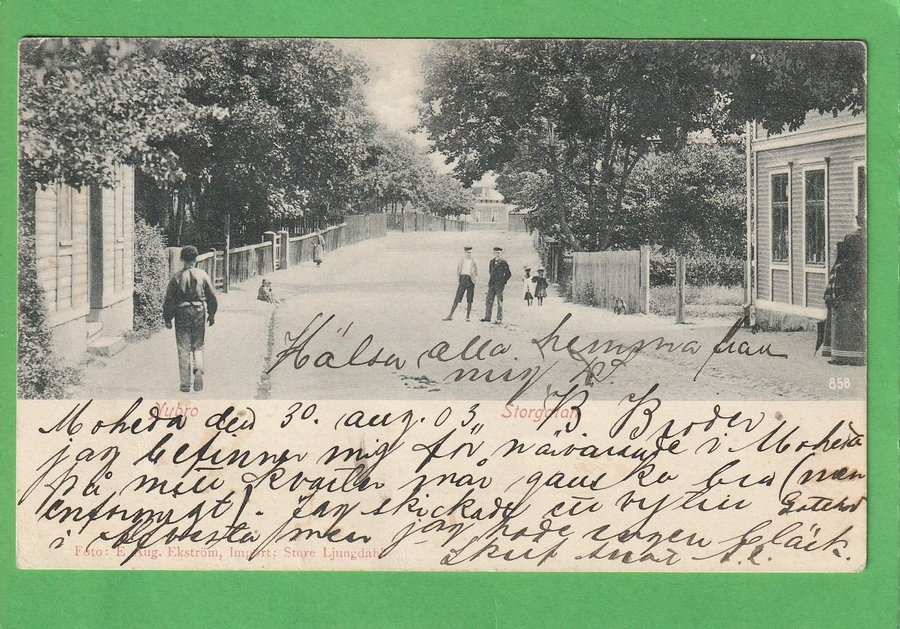 Hälsa alla hemma från
mig
858
Nybro Storgatan
Moheda den 30. aug. 03. B. Broder
jag befinner mig för närvarande i Moheda
på mitt kvarter mår ganska bra (men
enformigt). Jag skickade en vy till Gottfrid
i Alfvesta men jag hade ingen bläck.
Skrif snar
Foto: E. Aug. Ekström, Import: Sture Ljungdahl